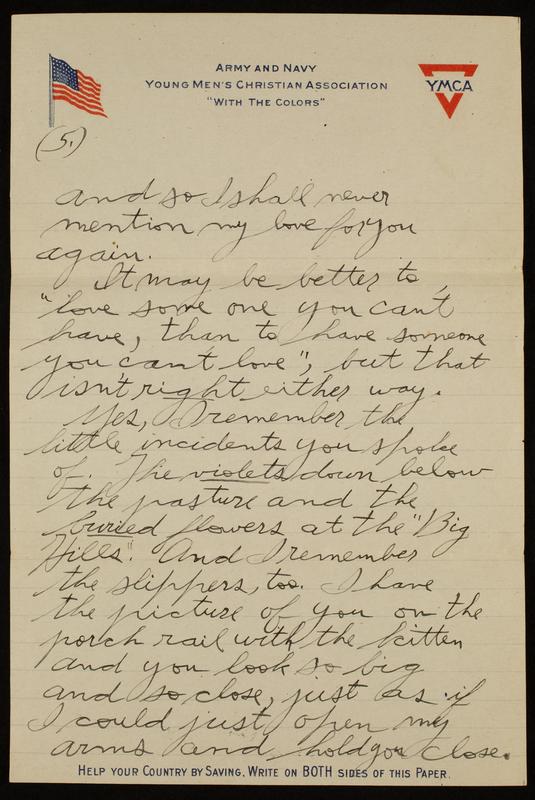 ARMY AND NAVY
YOUNG MEN'S CHRISTIAN ASSOCIATION
"WITH THE COLORS"
YMCA
(5.)
and so I shall never
mention my love for you
again.
It may be better to
"love some one you can't
have, than to have someone
you can't love", but that
isn't right either way.
Yes, I remember the
little incidents you spoke
of. The violets down below
the pasture and the
buried flowers at the "Big
Hills". And I remember
the slippers, too. I have
the picture of you on the
porch rail with the kitten
and you look so big
and so close, just as if
I could just open my
arms and hold you close.
HELP YOUR COUNTRY BY SAVING. WRITE ON BOTH SIDES OF THIS PAPER.